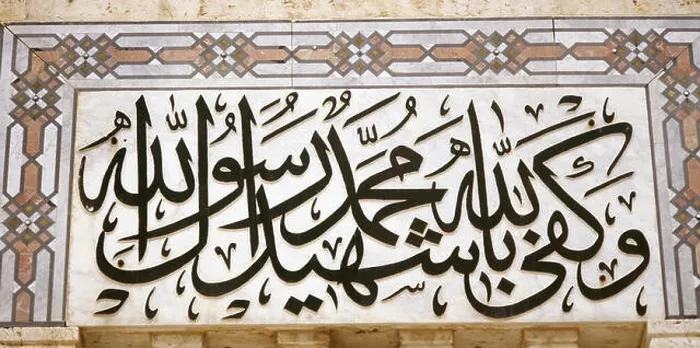 وَكَفَى بِاللَّهِ شَهِيدًا مُحَمَّدٌ رَسُولُ اللَّهِ